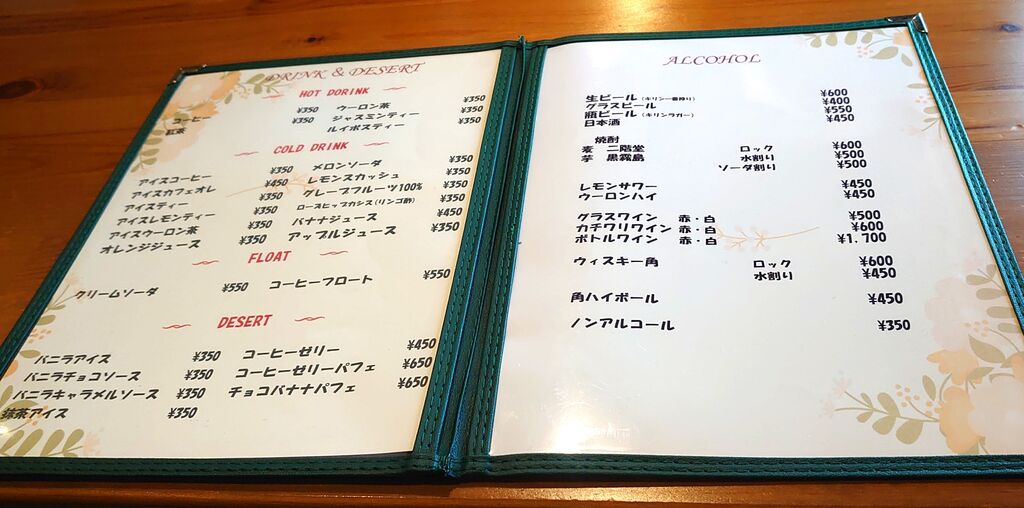 DRINK & DESERT
HOT DORINK
コーヒー ¥350 ウーロン茶 ¥350
紅茶 ¥350 ジャスミンティー ¥350
ルイボスティー ¥350
COLD DRINK
アイスコーヒー ¥350 メロンソーダ ¥350
アイスカフェオレ ¥450 レモンスカッシュ ¥350
アイスティー ¥350 グレープフルーツ100% ¥350
アイスレモンティー ¥350 ローズヒップカシス(リンゴ酢) ¥350
アイスウーロン茶 ¥350 バナナジュース ¥450
オレンジジュース ¥350 アップルジュース ¥350
FLOAT
クリームソーダ ¥550 コーヒーフロート ¥550
DESERT
バニラアイス ¥350 コーヒーゼリー ¥450
バニラチョコソース ¥350 コーヒーゼリーパフェ ¥650
バニラキャラメルソース ¥350 チョコバナナパフェ ¥650
抹茶アイス ¥350
ALCOHOL
生ビール (キリン一番搾り) ¥600
グラスビール ¥400
瓶ビール (キリンラガー) ¥550
日本酒 ¥450
焼酎
麦 二階堂 ロック ¥600
芋 黒霧島 水割り ¥500
ソーダ割り ¥500
レモンサワー ¥450
ウーロンハイ ¥450
グラスワイン 赤・白 ¥500
カチワリワイン 赤・白 ¥600
ボトルワイン 赤・白 ¥1,700
ウィスキー角 ロック ¥600
水割り ¥450
角ハイボール ¥450
ノンアルコール ¥350